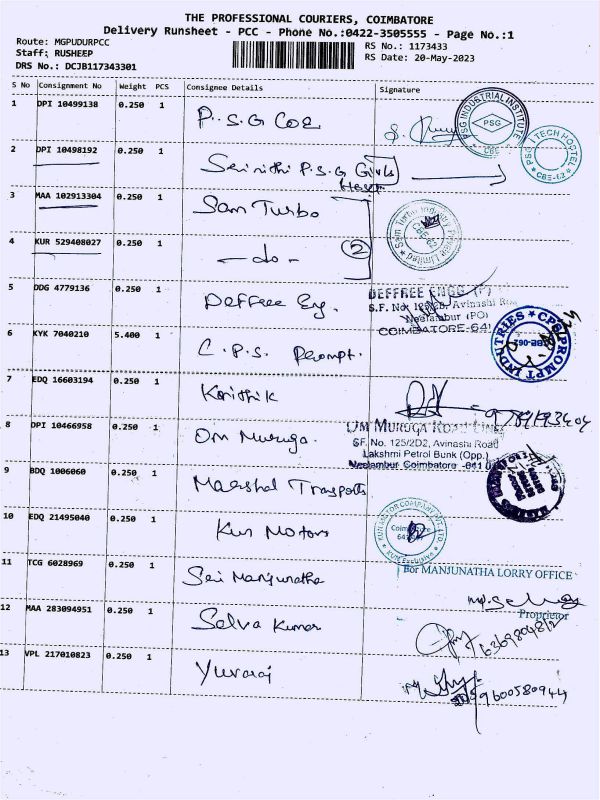 THE PROFESSIONAL COURIERS, COIMBATORE
Delivery Runsheet - PCC - Phone No.:0422-3505555 - Page No.:1
Route: MGPUDURPCC
RS No.: 1173433
Staff: RUSHEEP
RS Date: 20-May-2023
DRS No.: DCJB117343301
S No Consignment No Weight PCS Consignee Details Signature
1 DPI 10499138 0.250 1 P.S.G COE
PSG INDUSTRIAL INSTITUTE
PSG
CBE
2 DPI 10498192 0.250 1 Srinithi P.S.G Girls
Hostel
PSG I TECH HOSTEL
CBE-62
3 MAA 102913304 0.250 1 Sam Turbo
4 KUR 529408027 0.250 1 - do - (2)
5 DDG 4779136 0.250 1 Deffree Eng.
DEFFREE ENGG (P)
Avinashi Road
Neelambur (PO)
COIMBATORE-641
6 KYK 7040210 5.400 1 C.P.S. Prompt.
CPS PROMPT INDUTRIES
7 EDQ 16603194 0.250 1 Karithik
8 DPI 10466958 0.250 1 Om Muruga.
OM MURUGA ROAD LINES
SF. No. 125/2D2, Avinashi Road
Lakshmi Petrol Bunk (Opp.)
Neelambur Coimbatore -641
9 BDQ 1006060 0.250 1 Marshal Transports
10 EDQ 21495040 0.250 1 Kun Motors
KUN MOTOR COMPANY PVT LTD
Coimbatore
KUN Exclusive
11 TCG 6028969 0.250 1 Sri Manjunatha
For MANJUNATHA LORRY OFFICE
Proprietor
12 MAA 283094951 0.250 1 Selva Kumar
13 VPL 217010823 0.250 1 Yuvaraj
9600580944